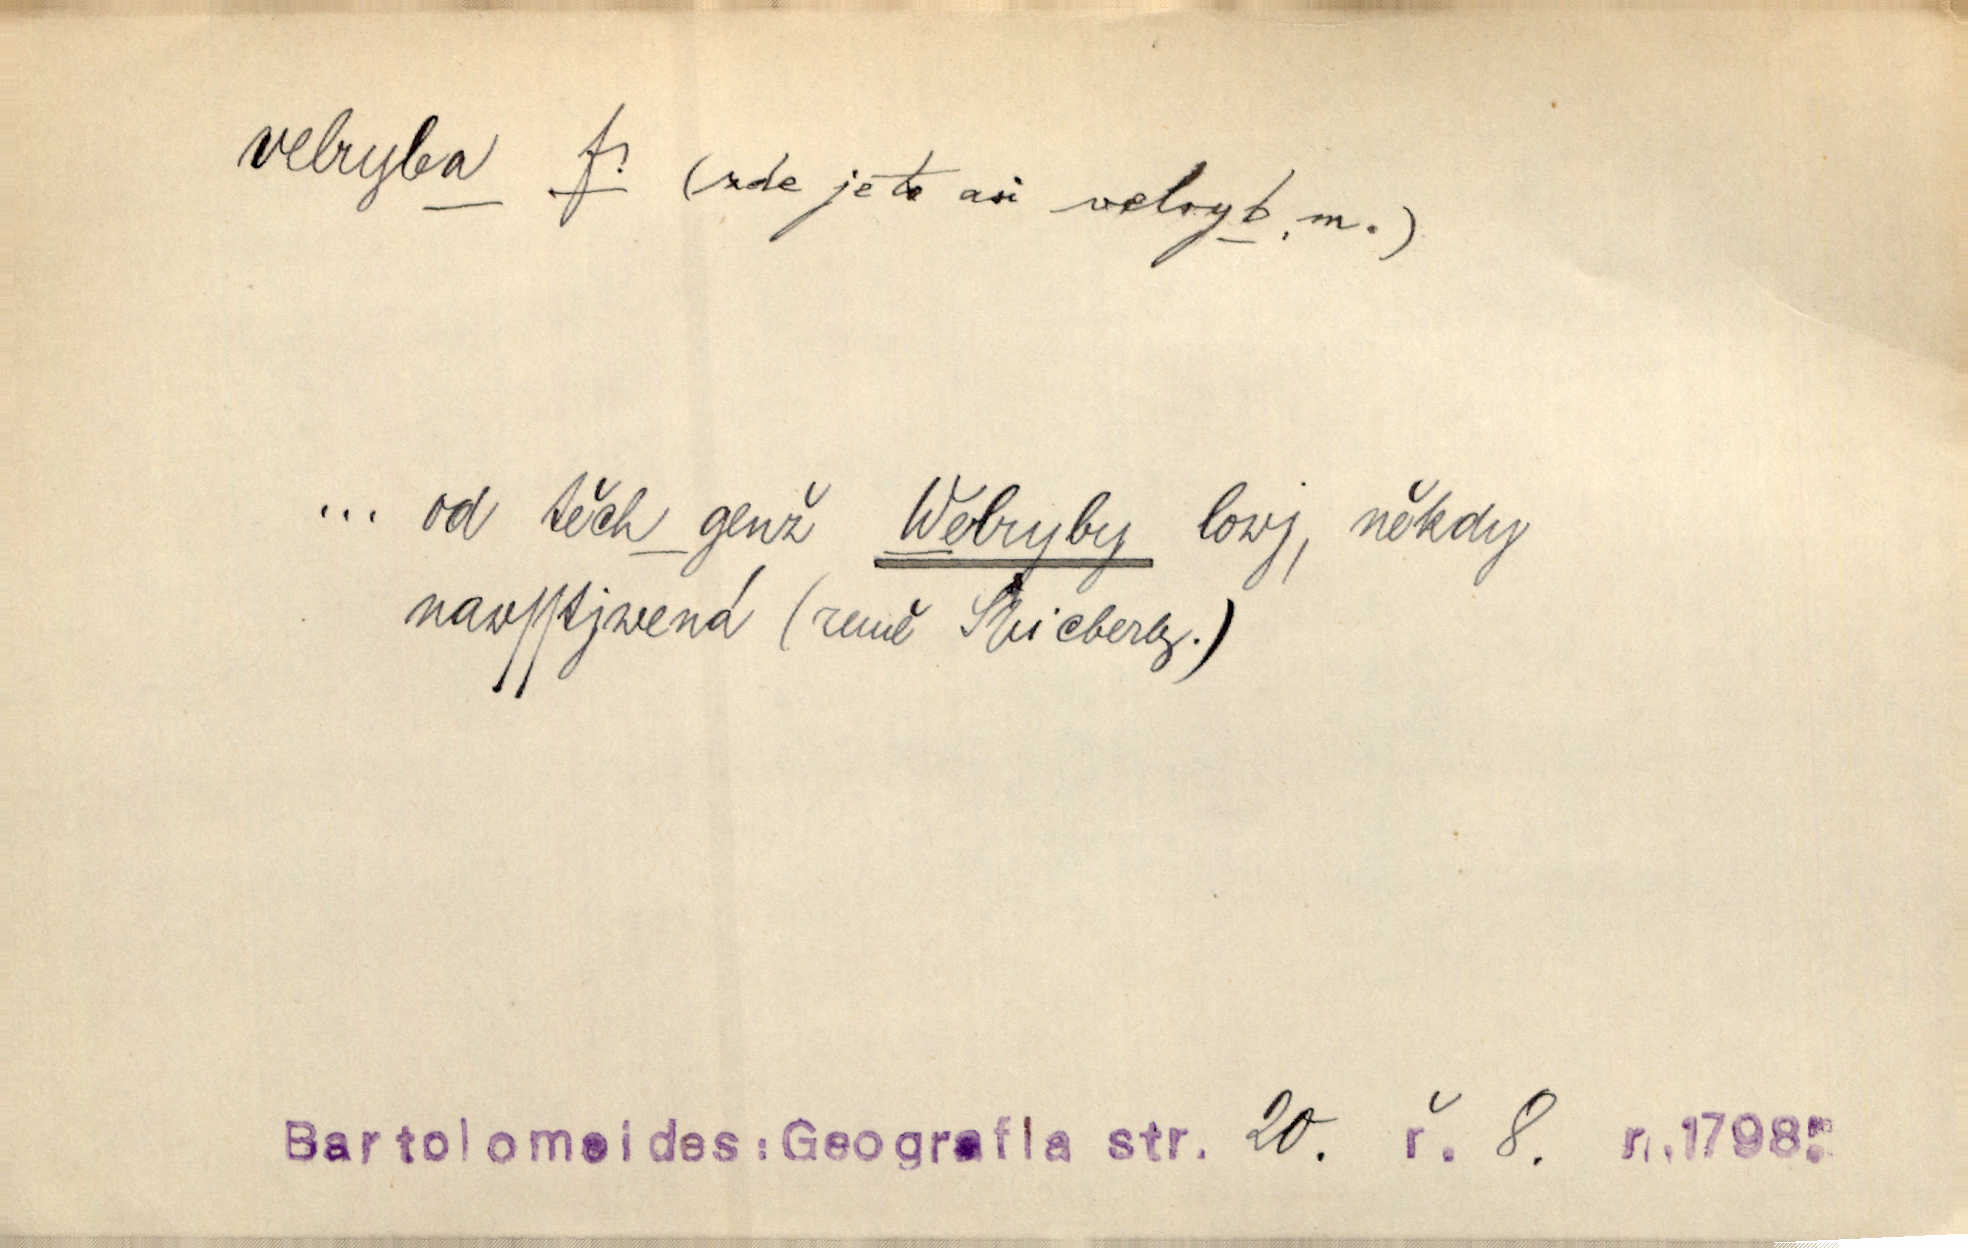 velryba f. (zde je to asi velryb, m.)
... od těch genž Welryby lowj, někdy
nawſſtjwená (země Špicberg.)
Bartolomeides: Geografia str. 20. ř. 8. r. 1798.